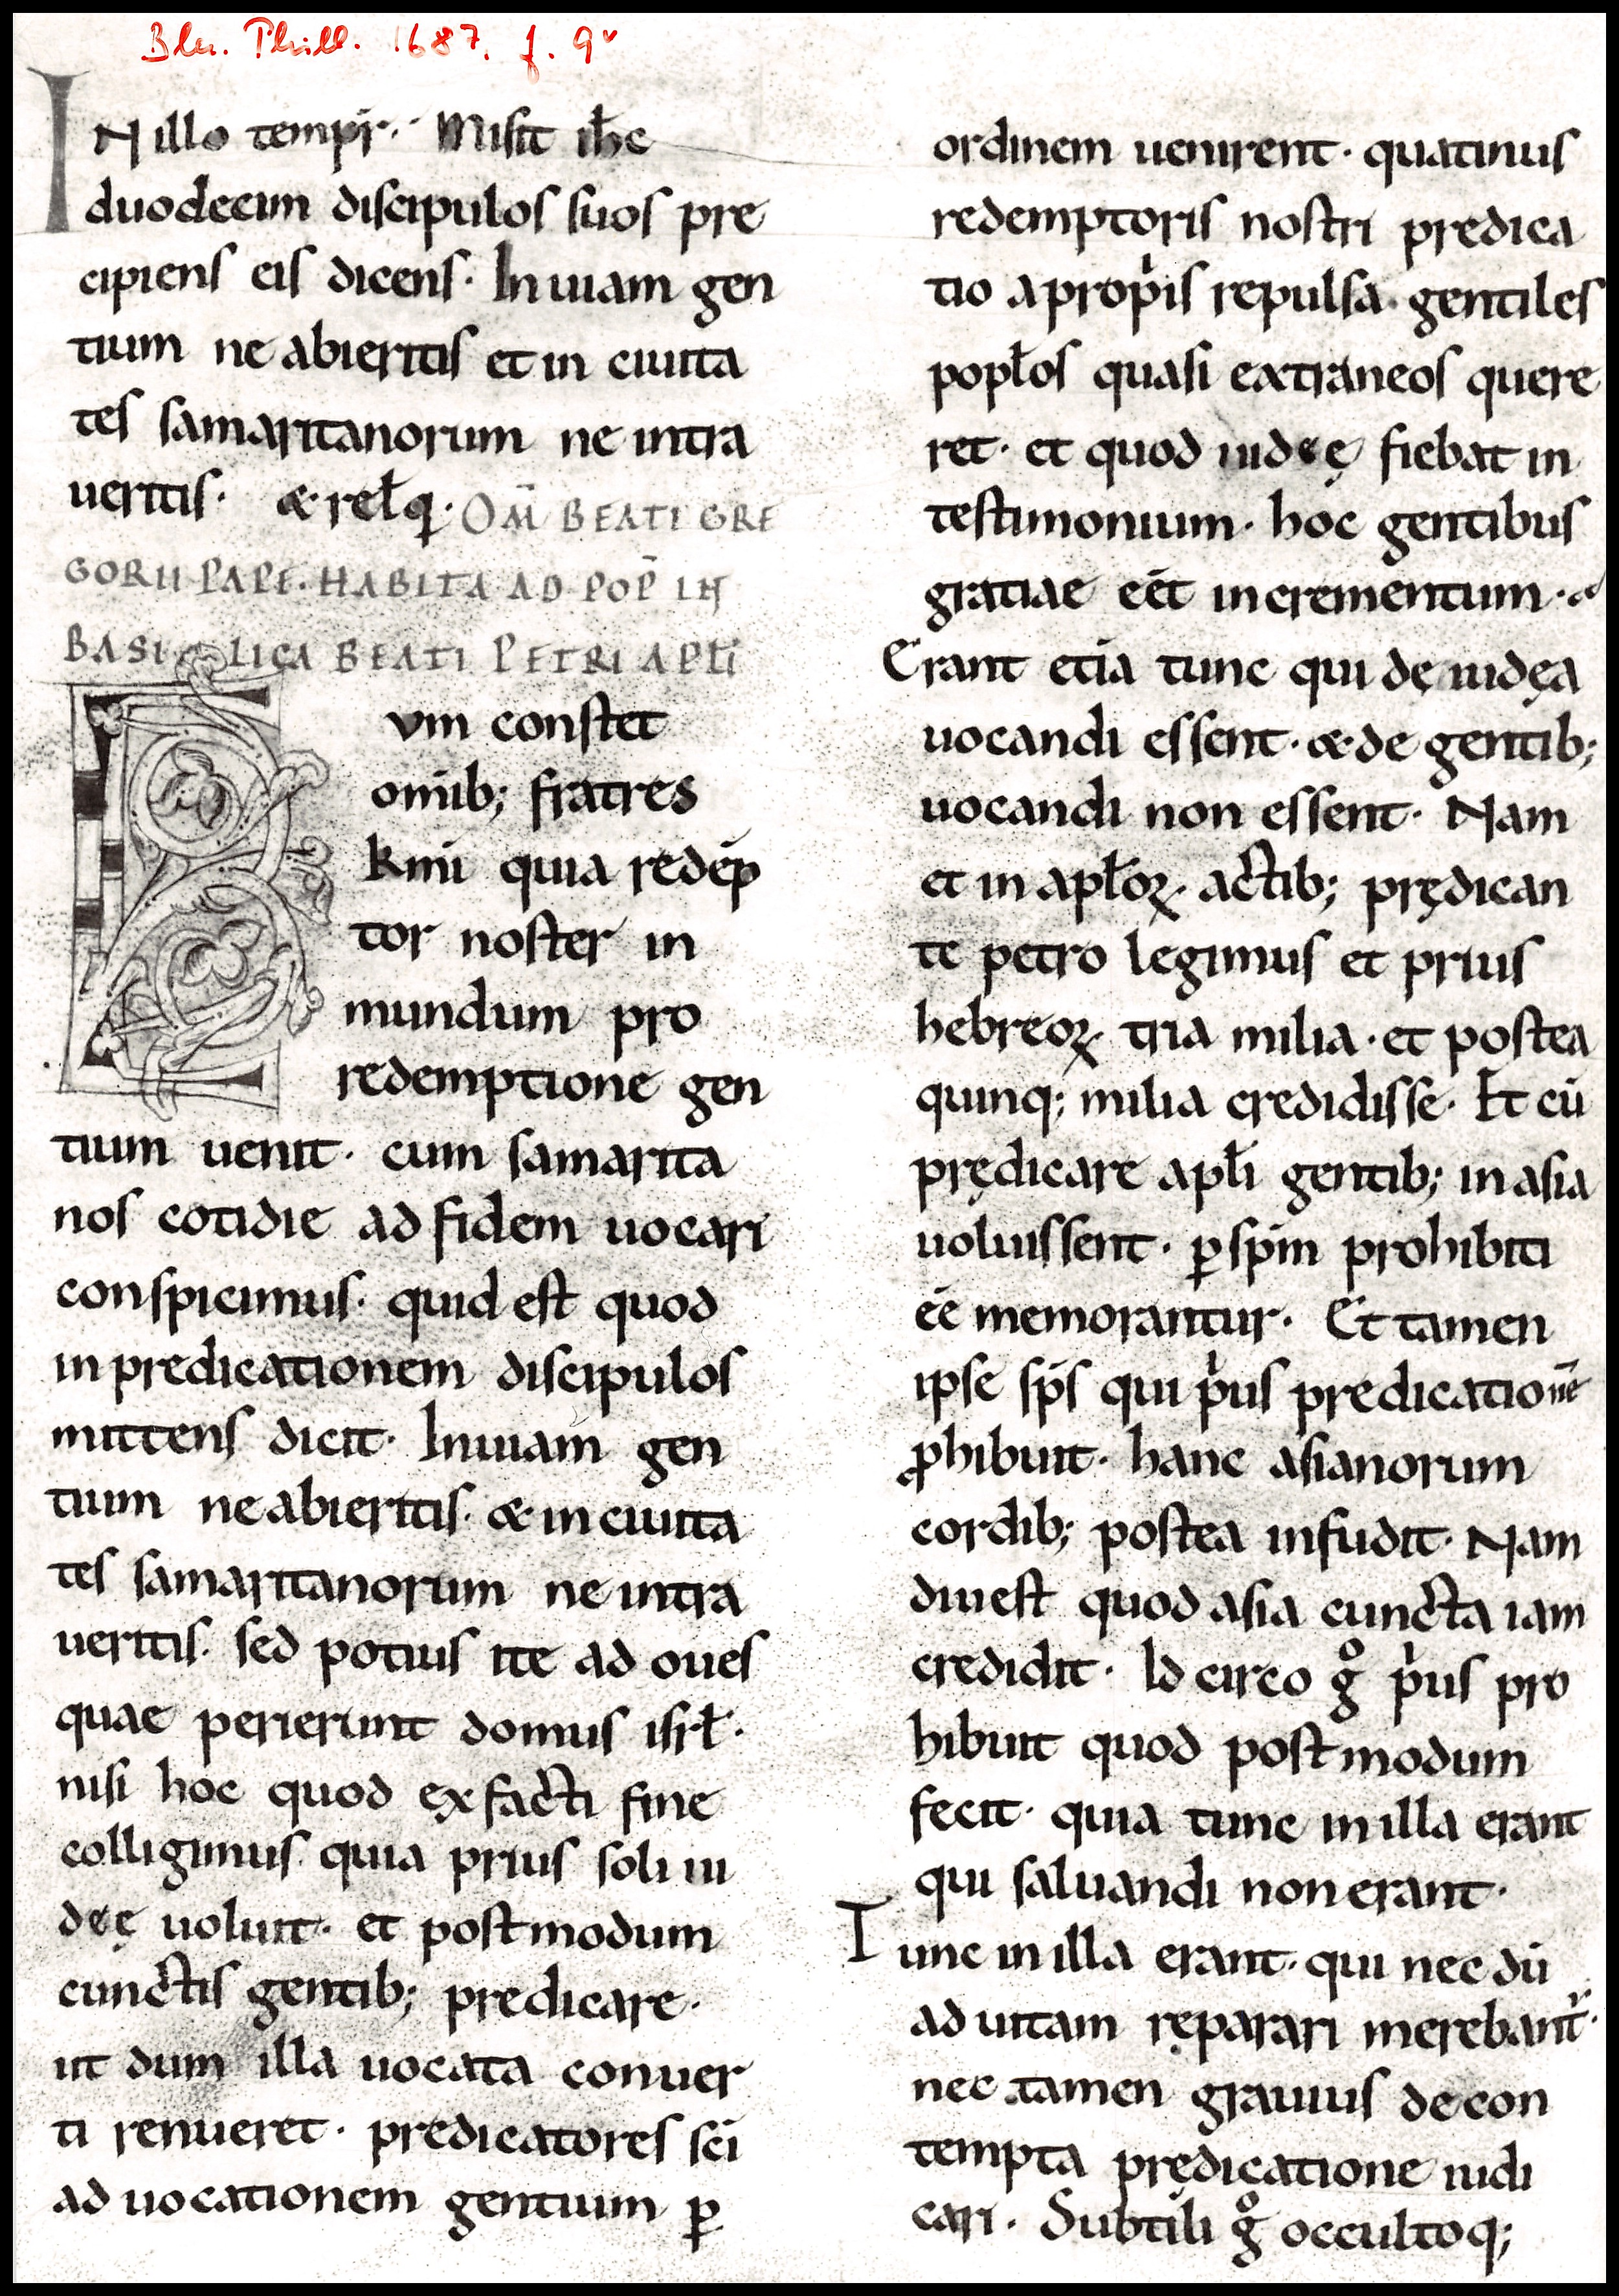 Bln. Phill. 1687. f. 9v
IN illo tempr̄. Misit ih̄c
duodecim discipulos suos pre
cipiens eis dicens· In uiam gen
tium ne abieritis et in ciuita
tes samaritanorum ne intra
ueritis· & relq̄· OM̄ BEATI GRE
GORII PAPE· HABITA AD POP̄ IN
BASILICA BEATI PETRI APLĪ
vm constet
om̄ib; fratres
km̄i quia redēp
tor noster in
mundum pro
redemptione gen
tium uenit· cum samarita
nos cotidie ad fidem uocari
conspicimus· quid est quod
in predicationem discipulos
mittens dicit· In uiam gen
tium ne abieritis· & in ciuita
tes samaritanorum ne intra
ueritis· sed potius ite ad oues
quae perierunt domus isrł·
nisi hoc quod ex facti fine
colligimus quia prius soli iu
deę uoluit· et postmodum
cunctis gentib; predicare·
ut dum illa uocata conuer
ti renueret· predicatores sc̄i
ad uocationem gentium ꝑ
ordinem uenirent· quatinus
redemptoris nostri predica
tio a propiis repulsa· gentiles
popłos quasi extraneos quere
ret· et quod iudeę fiebat in
testimonium· hoc gentibus
gratiae eēt incrementum·
Erant etiā tunc qui dę iudęa
uocandi essent· & de gentib;
uocandi non essent· Nam
et in apłoꝝ actib; prędican
te petro legimus et prius
hebreoꝝ tria milia· et postea
quinq; milia credidisse· Et cū
prędicare apłi gentib; in asia
uoluissent· ꝑ sp̄m prohibiti
eē memorantur· Et tamen
ipse sp̄s qui pius predicationē
ꝓhibuit· hanc asianorum
cordib; postea infudit· Nam
diu est quod asia cuncta iam
credidit· Idcirco gͦ pius pro
hibuit quod postmodum
fecit· quia tunc in illa erant
qui saluandi non erant·
Tunc in illa erant· qui nec dū
ad uitam ręparari merebant᷑·
nec tamen grauius de con
tempta prędicatione iudi
cari· Subtili gͦ occultoq;